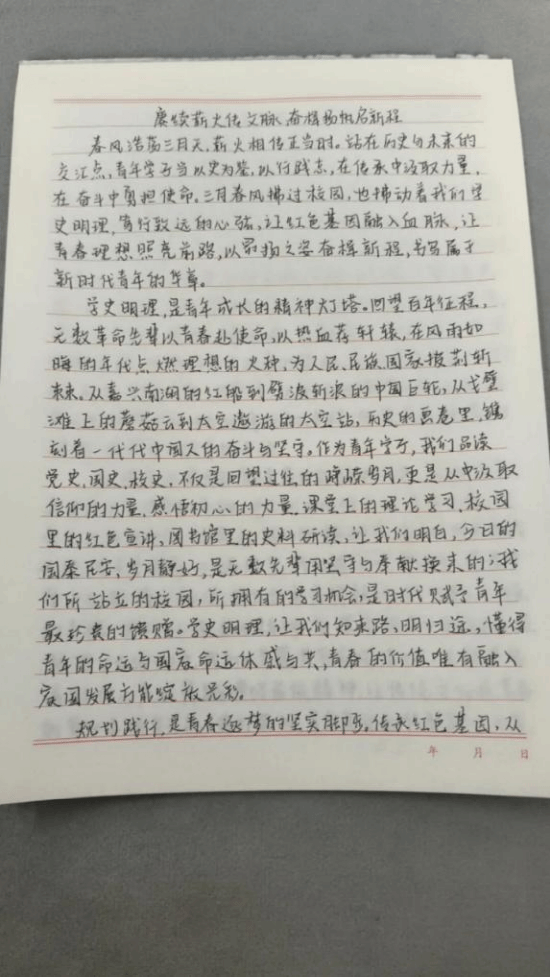 赓续薪火传文脉,奋楫扬帆启新程
春风浩荡三月天,薪火相传正当时。站在历史与未来的
交汇点,青年学子当以史为鉴,以行践志,在传承中汲取力量,
在奋斗中勇担使命。三月春风拂过校园,也拂动着我们学
史明理、笃行致远的心弦,让红色基因融入血脉,让
青春理想照亮前路,以昂扬之姿奋楫新程,书写属于
新时代青年的华章。
学史明理,是青年成长的精神灯塔。回望百年征程,
无数革命先辈以青春赴使命,以热血荐轩辕,在风雨如
晦的年代点燃理想的火种,为人民、民族、国家披荆斩
棘。从嘉兴南湖的红船到劈波斩浪的中国巨轮,从戈壁
滩上的蘑菇云到太空遨游的太空站,历史的画卷里,镌
刻着一代代中国人的奋斗与坚守。作为青年学子,我们品读
党史、国史、校史,不仅是回望过往的峥嵘岁月,更是从中汲取
信仰的力量、感悟初心的力量。课堂上的理论学习、校园
里的红色宣讲、图书馆里的史料研读,让我们明白,今日的
国泰民安、岁月静好,是无数先辈用坚守与奉献换来的;我
们所站立的校园,所拥有的学习机会,是时代赋予青年
最珍贵的馈赠。学史明理,让我们知来路、明归途。懂得
青年的命运与国家命运休戚与共,青春的价值唯有融入
家国发展方能绽放光彩。
规划践行,是青春逐梦的坚实脚步。传承红色基因,从
年 月 日